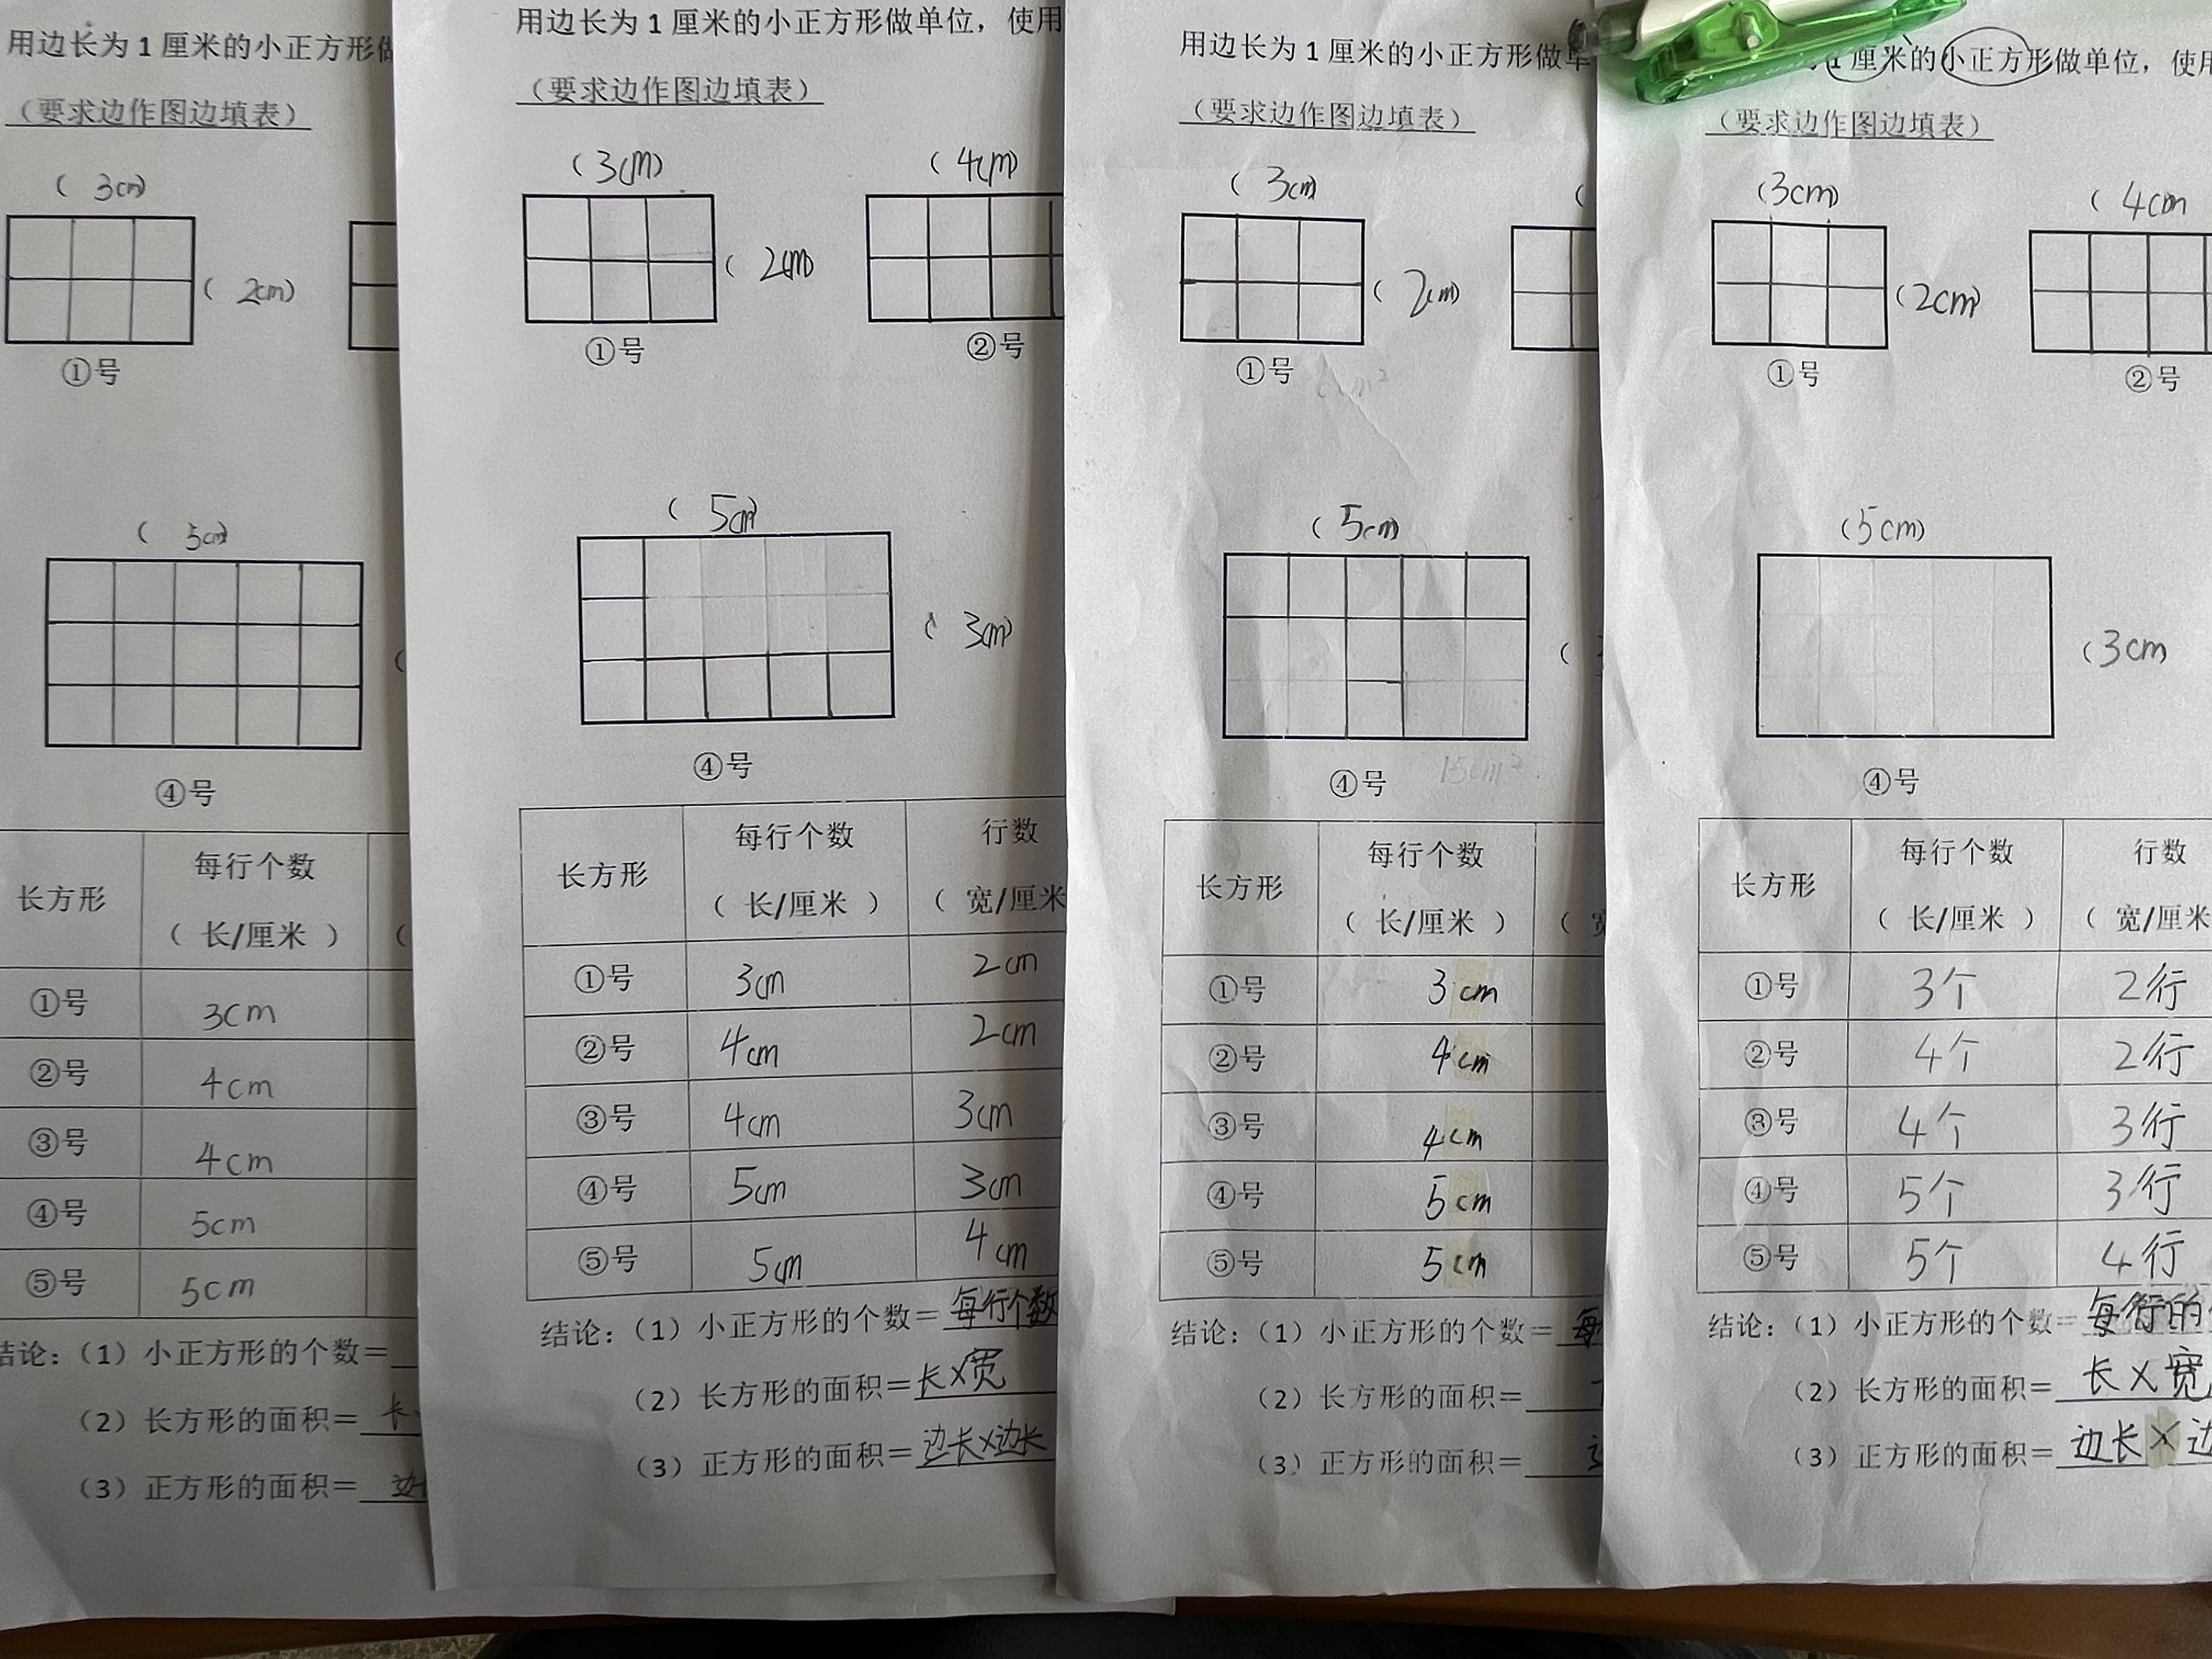 用边长为1厘米的小正方形做
（要求边作图边填表）
（ 3cm）
（ 2cm）
①号
（ 5cm）
（
④号
长方形
每行个数
（ 长/厘米 ）
（
①号 3cm
②号 4cm
③号 4cm
④号 5cm
⑤号 5cm
结论：（1）小正方形的个数＝
（2）长方形的面积＝长
（3）正方形的面积＝边
用边长为1厘米的小正方形做单位，使用
（要求边作图边填表）
（3cm）
（4cm）
（ 2cm）
①号
②号
（ 5cm）
（ 3cm）
④号
长方形
每行个数
（ 长/厘米 ）
行数
（ 宽/厘米
①号 3cm 2cm
②号 4cm 2cm
③号 4cm 3cm
④号 5cm 3cm
⑤号 5cm 4cm
结论：（1）小正方形的个数＝每行个数
（2）长方形的面积＝长×宽
（3）正方形的面积＝边长×边长
用边长为1厘米的小正方形做单
（要求边作图边填表）
（ 3cm）
（
（ 2cm）
①号
（5cm）
（
④号 15cm²
长方形
每行个数
（ 长/厘米 ）
（ 宽
①号 3cm
②号 4cm
③号 4cm
④号 5cm
⑤号 5cm
结论：（1）小正方形的个数＝每
（2）长方形的面积＝
（3）正方形的面积＝
1厘米的小正方形做单位，使用
（要求边作图边填表）
（3cm）
（ 4cm
（2cm）
①号
②号
（5cm）
（3cm
④号
长方形
每行个数
（ 长/厘米 ）
行数
（ 宽/厘米
①号 3个 2行
②号 4个 2行
③号 4个 3行
④号 5个 3行
⑤号 5个 4行
结论：（1）小正方形的个数＝每行的
（2）长方形的面积＝长×宽
（3）正方形的面积＝边长×边